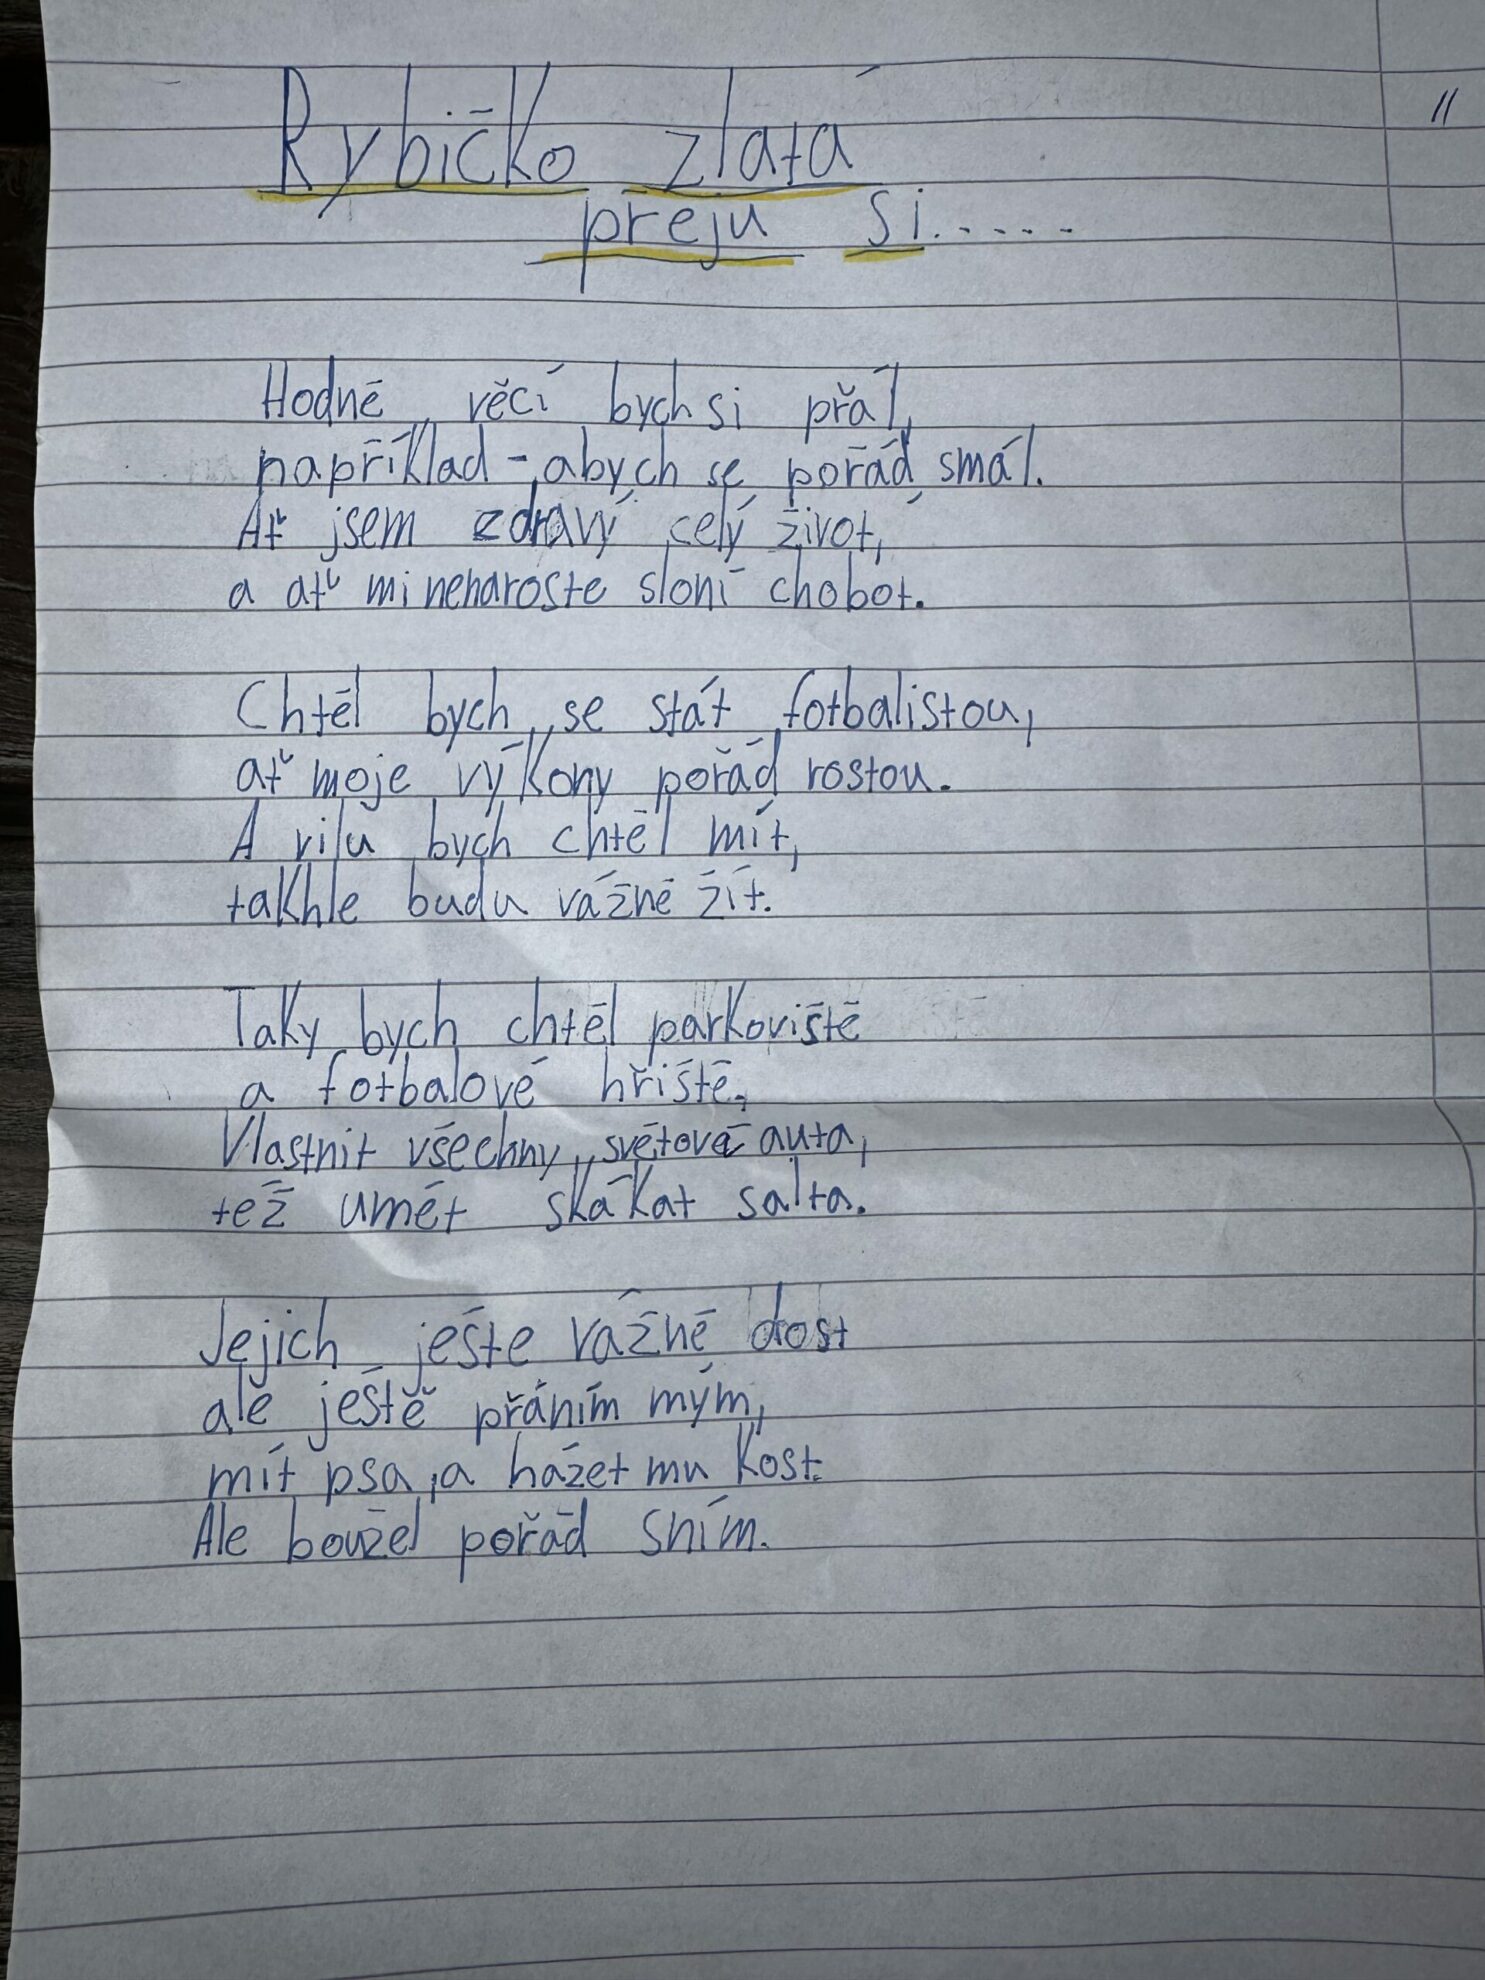 Rybičko zlatá
preju si.....
Hodně věcí bych si přál,
například - abych se pořád smál.
Ať jsem zdravý celý život,
a ať mi nenaroste sloní chobot.
Chtěl bych se stát fotbalistou,
ať moje výkony pořád rostou.
A vilu bych chtěl mít,
takhle budu vážně žít.
Taky bych chtěl parkoviště
a fotbalové hřiště.
Vlastnit všechny světová auta,
též umět skákat salta.
Jejich ješte vážně dost
ale ještě přáním mým,
mít psa, a házet mu kost.
Ale boužel pořád sním.